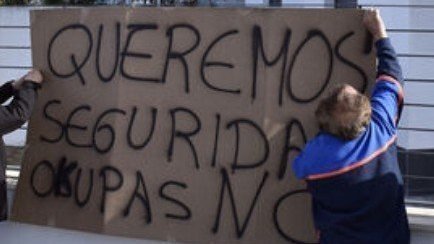 QUEREMOS
SEGURIDA
OKUPAS NO